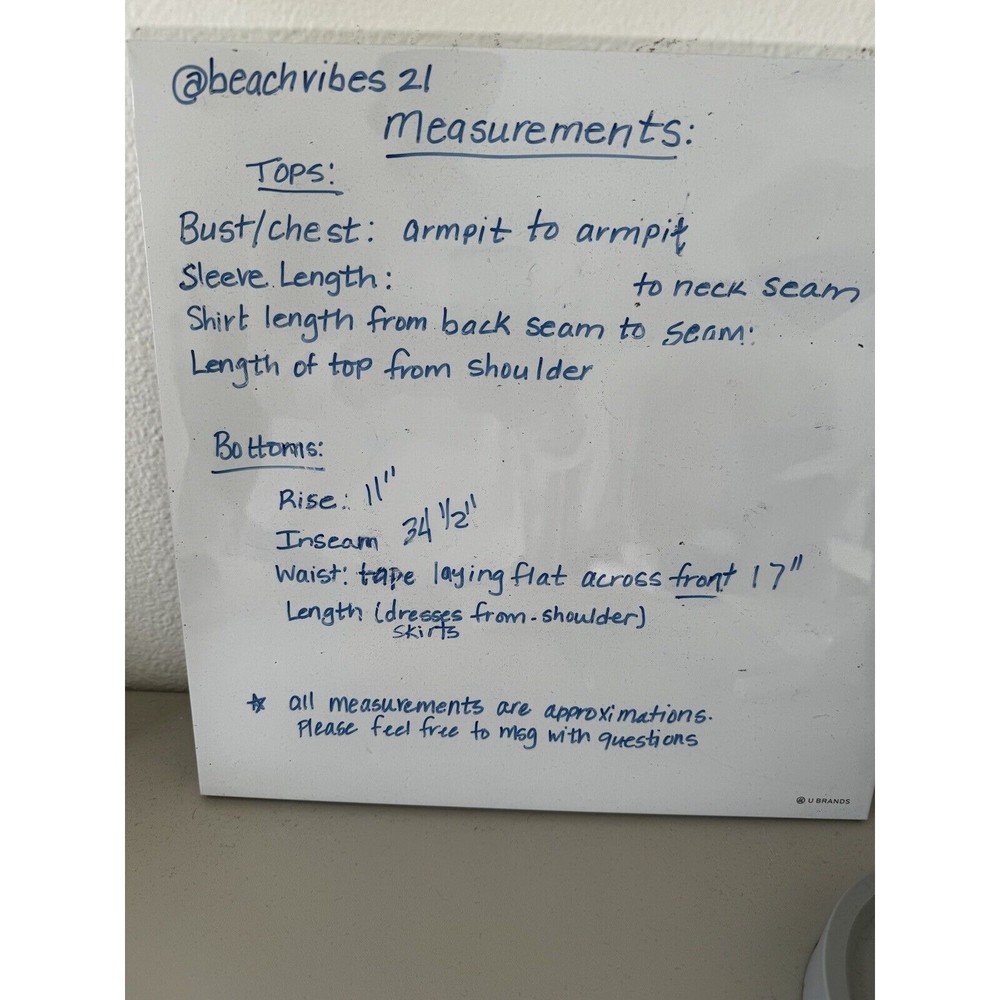 @beachvibes 21
Measurements:
TOPS:
Bust/chest: armpit to armpit
Sleeve Length: to neck seam
Shirt length from back seam to seam:
Length of top from shoulder
Bottoms:
Rise: 11"
Inseam 34 1/2"
Waist: tape laying flat across front 17"
Length (dresses from-shoulder)
skirts
* all measurements are approximations.
Please feel free to msg with questions
U BRANDS